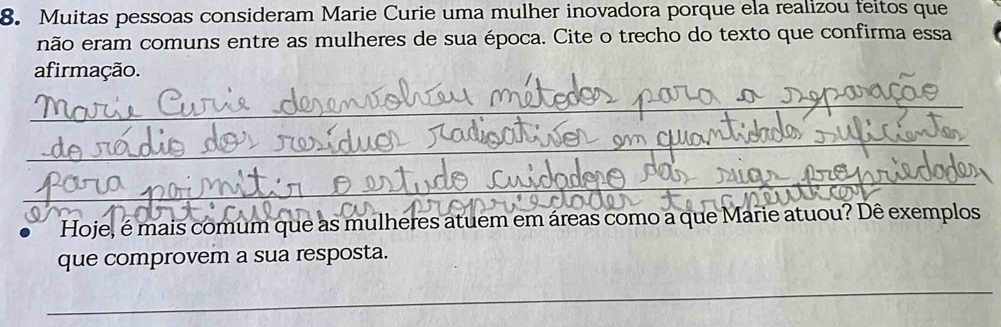 8. Muitas pessoas consideram Marie Curie uma mulher inovadora porque ela realizou feitos que
não eram comuns entre as mulheres de sua época. Cite o trecho do texto que confirma essa
afirmação.
Marie Curie desenvolveu métodos para a separação
do rádio dos resíduos radioativos em quantidades suficientes
para poimitir o estudo cuidadoso das suas propriedades
em particular, as propriedades terapêuticas
• Hoje, é mais comum que as mulheres atuem em áreas como a que Marie atuou? Dê exemplos
que comprovem a sua resposta.